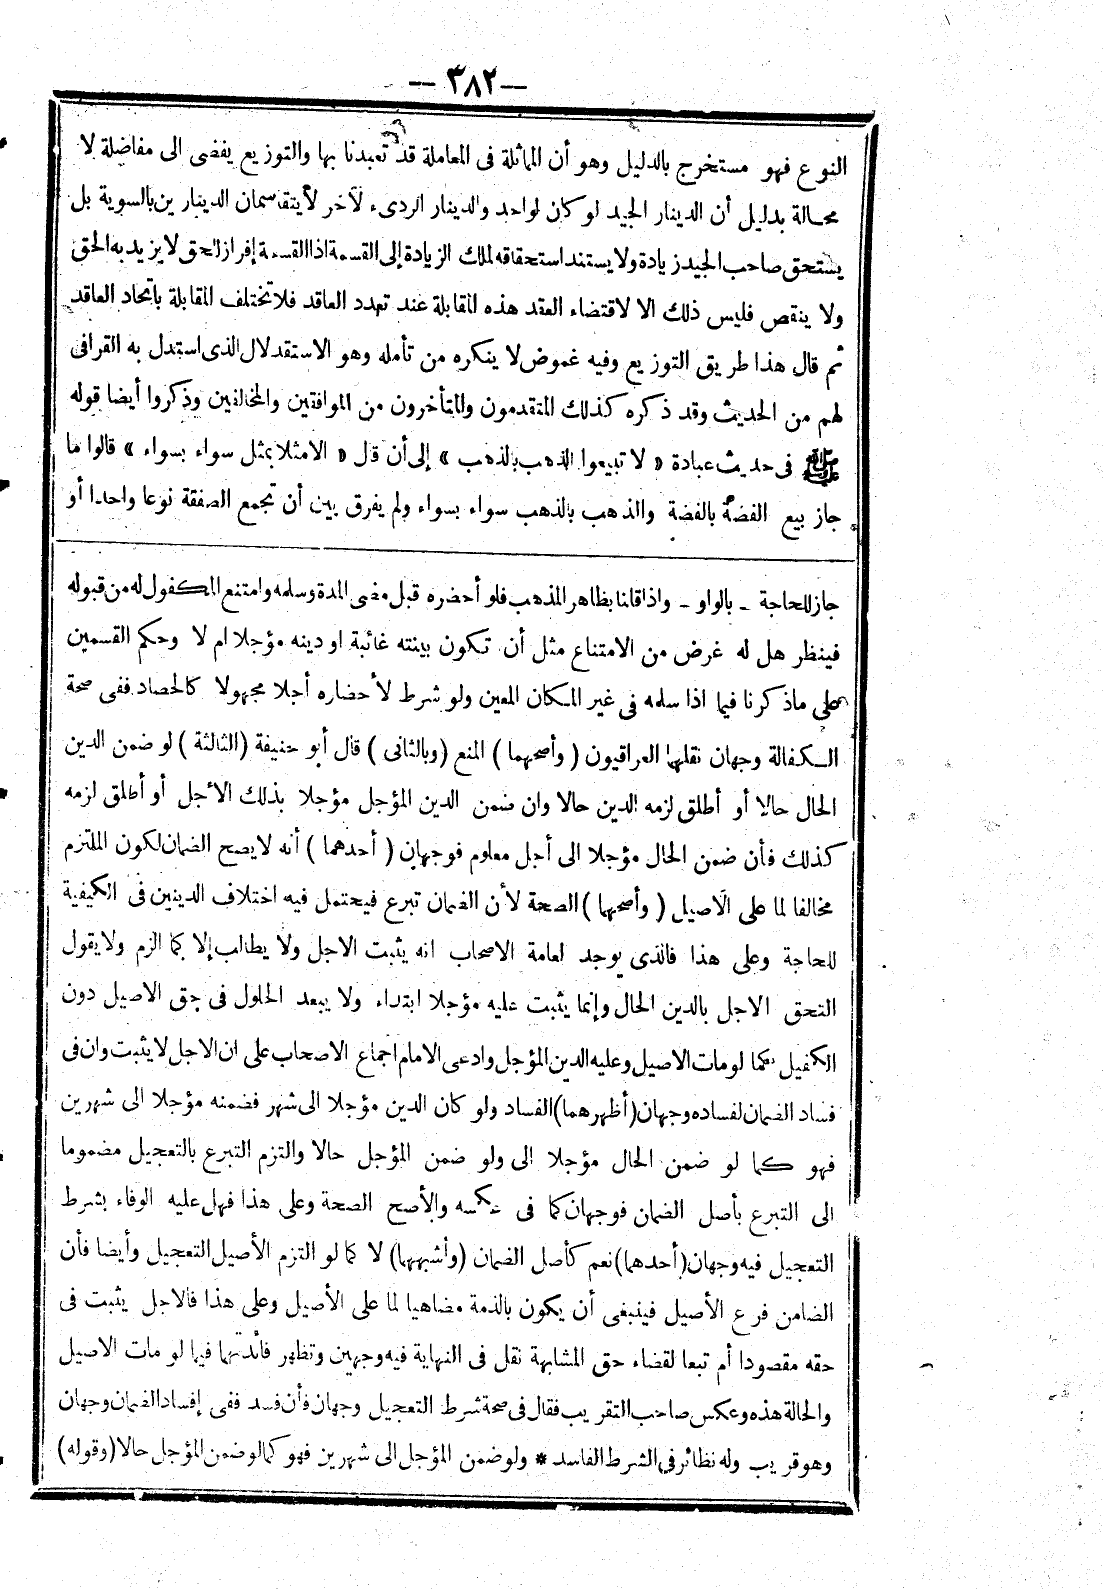 — ٣٨٢ —
النوع فهو مستخرج بالدليل وهو أن المماثلة فى المعاملة قد تعبدنا بها والتوزيع يفضى الى مفاضلة لا
محالة بدليل أن الدينار الجيد لو كان لواحد والدينار الردىء لآخر لا يتقاسمان الدينارين بالسوية بل
يستحق صاحب الجيد زيادة ولا يستند استحقاقه لملك الزيادة إلى القسمة اذ القسمة إفراز الحق لا يزيد به الحق
ولا ينقص فليس ذلك الا لاقتضاء العقد هذه المقابلة عند تعدد العاقد فلا تختلف المقابلة باتحاد العاقد
ثم قال هذا طريق التوزيع وفيه غموض لا ينكره من تأمله وهو الاستقدلال الذى استدل به القرافى
لهم من الحديث وقد ذكره كذلك المتقدمون والمتأخرون من الموافقين والمخالفين وذكروا أيضا قوله
ﷺ فى حديث عبادة « لا تبيعوا الذهب بالذهب » إلى أن قال « الا مثلا بمثل سواء بسواء » قالوا ما
جاز بيع الفضة بالفضة والذهب بالذهب سواء بسواء ولم يفرق بين أن تجمع الصفقة نوعا واحدا أو
جاز للحاجة ـ بالواو ـ واذا قلنا بظاهر المذهب فلو أحضره قبل مضى المدة وسلمه وامتنع المكفول له من قبوله
فينظر هل له غرض من الامتناع مثل أن تكون بينته غائبة او دينه مؤجلا ام لا وحكم القسمين
على ما ذكرنا فيما اذا سلمه فى غير المكان المعين ولو شرط لأحضاره أجلا مجهولا كالحصاد ففى صحة
الكفالة وجهان نقلهما العراقيون ( وأصحهما ) المنع ( وبالثانى ) قال أبو حنيفة ( الثالثة ) لو ضمن الدين
الحال حالا أو أطلق لزمه الدين حالا وان ضمن الدين المؤجل مؤجلا بذلك الاجل أو أطلق لزمه
كذلك فأن ضمن الحال مؤجلا الى أجل معلوم فوجهان ( أحدهما ) أنه لا يصح الضمان لكون الملتزم
مخالفا لما على الاصيل ( وأصحهما ) الصحة لأن الضمان تبرع فيحتمل فيه اختلاف الدينين فى الكيفية
للحاجة وعلى هذا فالذى يوجد لعامة الاصحاب انه يثبت الاجل ولا يطالب إلا كما الزم ولا يقول
التحق الاجل بالدين الحال وإنما يثبت عليه مؤجلا ابتداء ولا يبعد الحلول فى حق الاصيل دون
الكفيل كما لو مات الاصيل وعليه الدين المؤجل وادعى الامام اجماع الاصحاب على ان الاجل لا يثبت وان فى
فساد الضمان لفساده وجهان (أظهرهما) الفساد ولو كان الدين مؤجلا الى شهر فضمنه مؤجلا الى شهرين
فهو كما لو ضمن الحال مؤجلا الى ولو ضمن المؤجل حالا والتزم التبرع بالتعجيل مضموما
الى التبرع بأصل الضمان فوجهان كما فى عكسه والأصح الصحة وعلى هذا فهل عليه الوفاء بشرط
التعجيل فيه وجهان (أحدهما) نعم كأصل الضمان (وأشبههما) لا كما لو التزم الأصيل التعجيل وأيضا فأن
الضامن فرع الأصيل فينبغى أن يكون بالذمة مضاهيا لما على الأصيل وعلى هذا فالاجل يثبت فى
حقه مقصودا أم تبعا لقضاء حق المشابهة نقل فى النهاية فيه وجهين وتظهر فائدتهما فيما لو مات الاصيل
والحالة هذه وعكس صاحب التقريب فقال فى صحة شرط التعجيل وجهان فأن فسد ففى إفساد الضمان وجهان
وهو قريب وله نظائر فى الشرط الفاسد * ولو ضمن المؤجل الى شهرين فهو كما لو ضمن المؤجل حالا (وقوله)